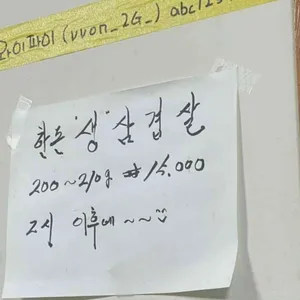 와이파이 (vvon_2G_) abc123
한돈 "생" 삼겹살
200~210g ₩15.000
2시 이후에~~